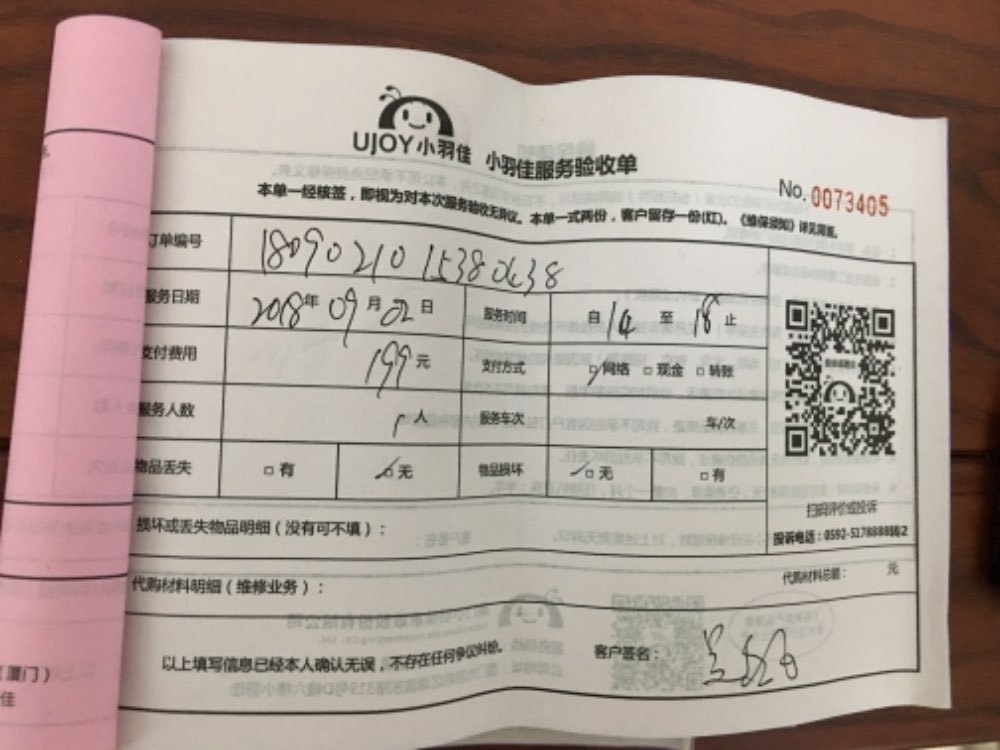 UJOY小羽佳 小羽佳服务验收单
No. 0073405
本单一经核签，即视为对本次服务验收无异议。本单一式两份，客户留存一份(红)。《维保须知》详见背面。
订单编号
服务日期 2018年 09月 02日 服务时间 自 14 至 18 止
支付费用 199元 支付方式 网络 □现金 □转账
服务人数 1人 服务车次 车/次
物品丢失 □有 无 物品损坏 无 □有
扫码评价或投诉
损坏或丢失物品明细（没有可不填）：
代购材料明细（维修业务）： 代购材料总额： 元
以上填写信息已经本人确认无误，不存在任何争议纠纷。 客户签名：
（厦门）
佳